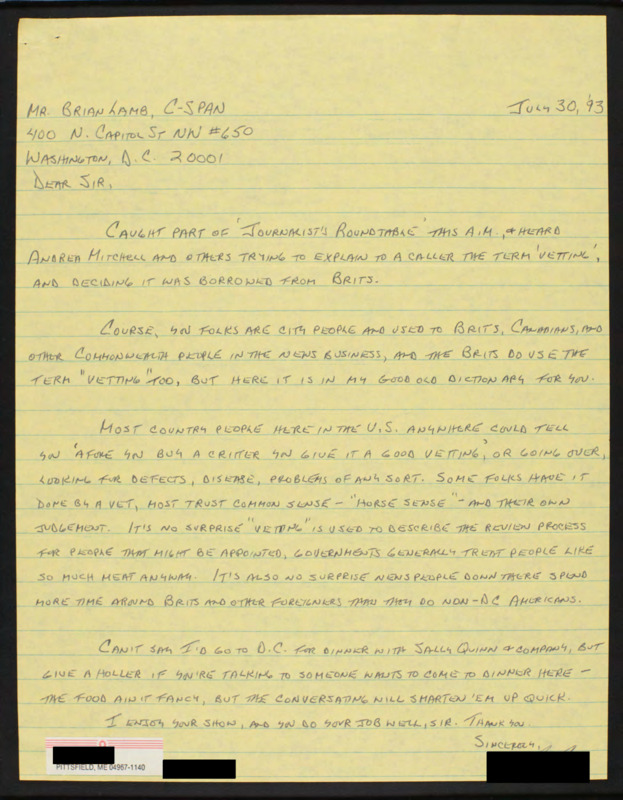 Mr. Brian Lamb, C-SPAN
July 30, '93
400 N. Capitol St NW #650
Washington, D.C. 20001
Dear Sir,
Caught part of 'Journalist's Roundtable' this A.M., & heard
Andrea Mitchell and others trying to explain to a caller the term 'vetting',
and deciding it was borrowed from Brits.
Course, you folks are city people and used to Brits, Canadians, and
other Commonwealth people in the news business, and the Brits do use the
term "vetting" too, but here it is in my good old dictionary for you.
Most country people here in the U.S. anywhere could tell
you 'afore you buy a critter you give it a good vetting', or going over,
looking for defects, disease, problems of any sort. Some folks have it
done by a vet, most trust common sense - "horse sense" - and their own
judgement. It's no surprise "vetting" is used to describe the review process
for people that might be appointed, governments generally treat people like
so much meat anyway. It's also no surprise newspeople down there spend
more time around Brits and other foreigners than they do non-DC Americans.
Can't say I'd go to D.C. for dinner with Sally Quinn & company, but
give a holler if you're talking to someone wants to come to dinner here -
the food ain't fancy, but the conversating will smarten 'em up quick.
I enjoy your show, and you do your job well, sir. Thank you.
Sincerely,
PITTSFIELD, ME 04967-1140